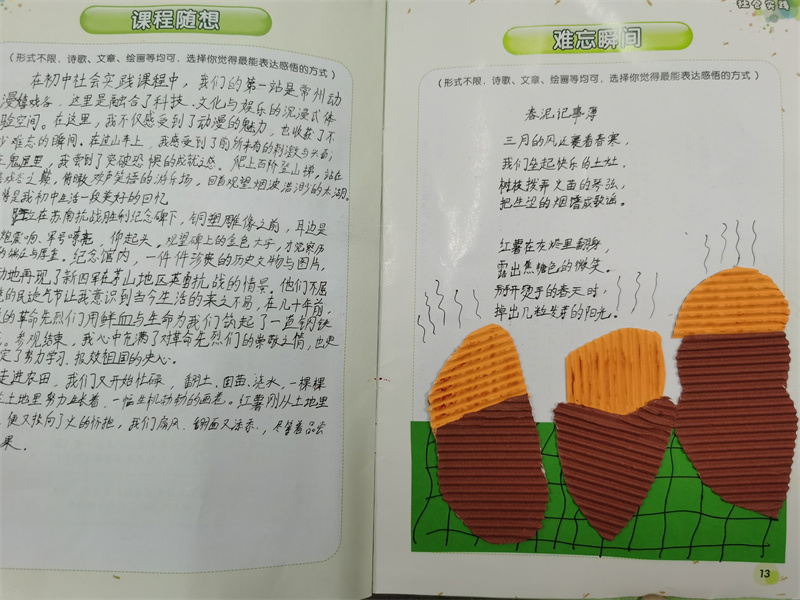 课程随想
（形式不限，诗歌、文章、绘画等均可，选择你觉得最能表达感悟的方式）
在初中社会实践课程中，我们的第一站是常州动
漫嬉戏谷，这里是融合了科技、文化与娱乐的沉浸式体
验空间。在这里，我不仅感受到了动漫的魅力，也收获了不
少难忘的瞬间。在过山车上，我感受到了前所未有的刺激与兴奋；
鬼屋里，我尝到了突破恐惧的成就之感。爬上百阶登山梯，站在
之巅，俯瞰欢声笑语的游乐场，回首观望烟波浩渺的太湖。
将是我初中生活一段美好的回忆。
立在苏南抗战胜利纪念碑下，铜塑雕像之前，耳边是
炮轰响、军号嘹亮，仰起头，观望碑上的金色大字，才觉察历
的端庄与厚重。纪念馆内，一件件珍贵的历史文物与图片，
动地再现了新四军在茅山地区英勇抗战的情景。他们不屈
的民族气节让我意识到当今生活的来之不易，在几十年前，
的革命先烈们用鲜血与生命为我们筑起了一道钢铁
。参观结束，我心中充满了对革命先烈们的崇敬之情，也更
定了努力学习、报效祖国的决心。
走进农田，我们又开始忙碌，翻土、回苗、浇水，一棵棵
土地里努力生长着，一幅生机勃勃的画卷。红薯刚从土地里
，便又投向了火的怀抱，我们扇风、翻面又添柴，尽管着品尝
果。
社会实践
难忘瞬间
（形式不限，诗歌、文章、绘画等均可，选择你觉得最能表达感悟的方式）
春泥记事簿
三月的风还裹着春寒，
我们垒起快乐的土灶，
树枝拨弄火苗的琴弦，
把生涩的烟谱成歌谣。
红薯在灰烬里翻身，
露出焦糖色的微笑。
掰开烫手的春天时，
掉出几粒发芽的阳光。
13